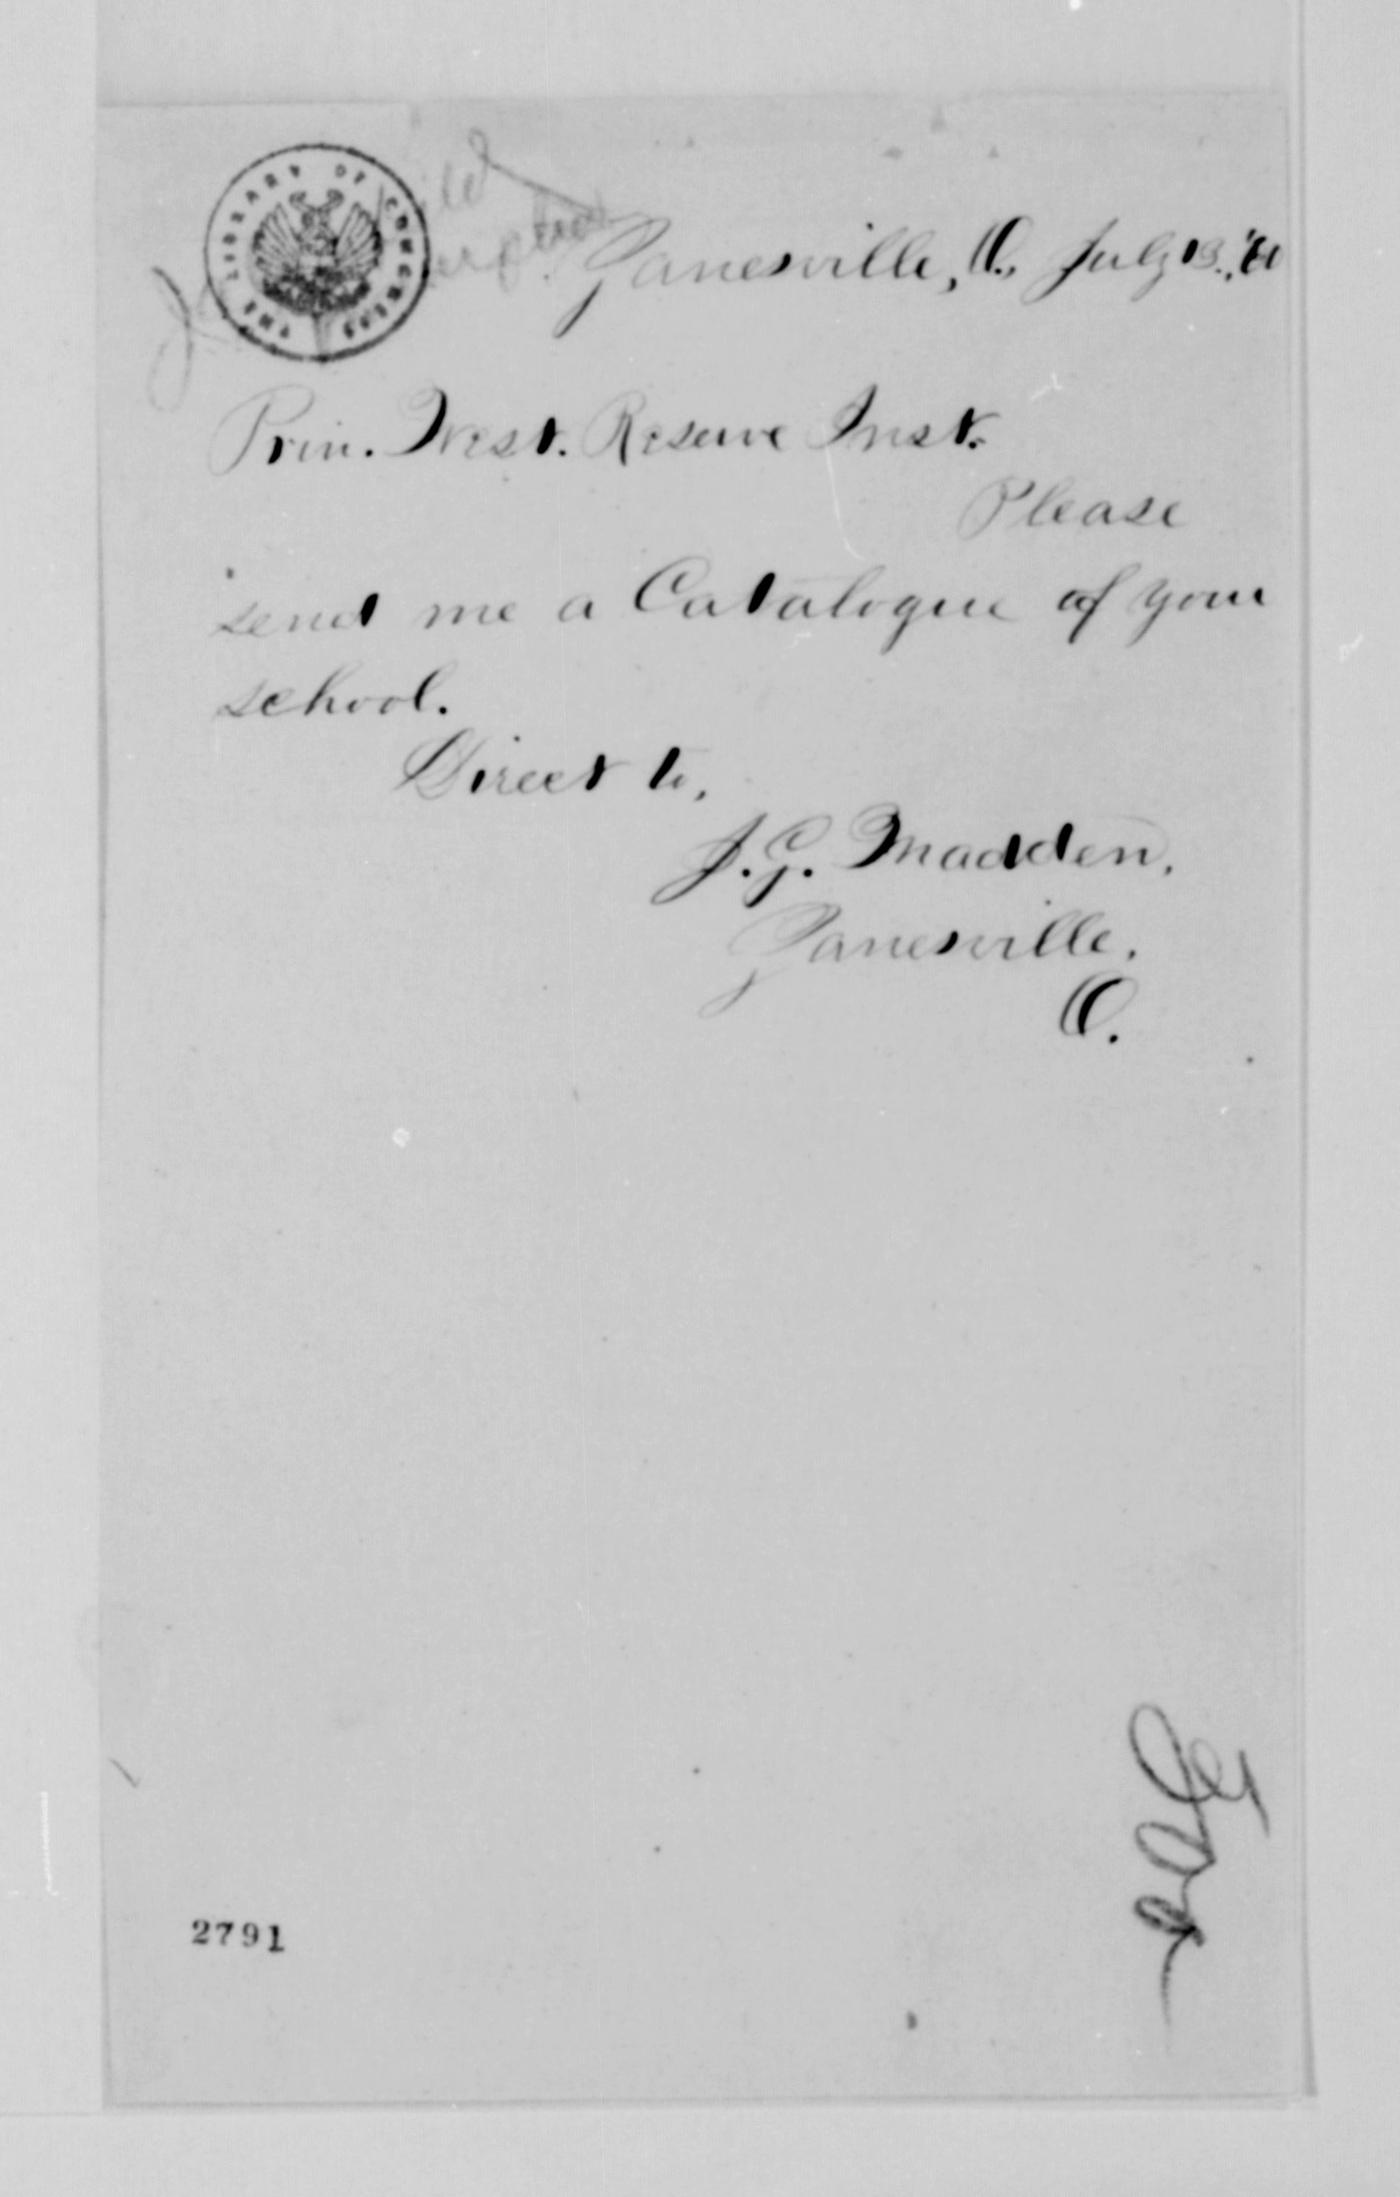 THE LIBRARY OF CONGRESS
Zanesville, O., July 13., '61
Prin. West. Reserve Inst.
Please
send me a Catalogue of your
school.
Direct to,
J. G. Madden,
Zanesville,
O.
2791